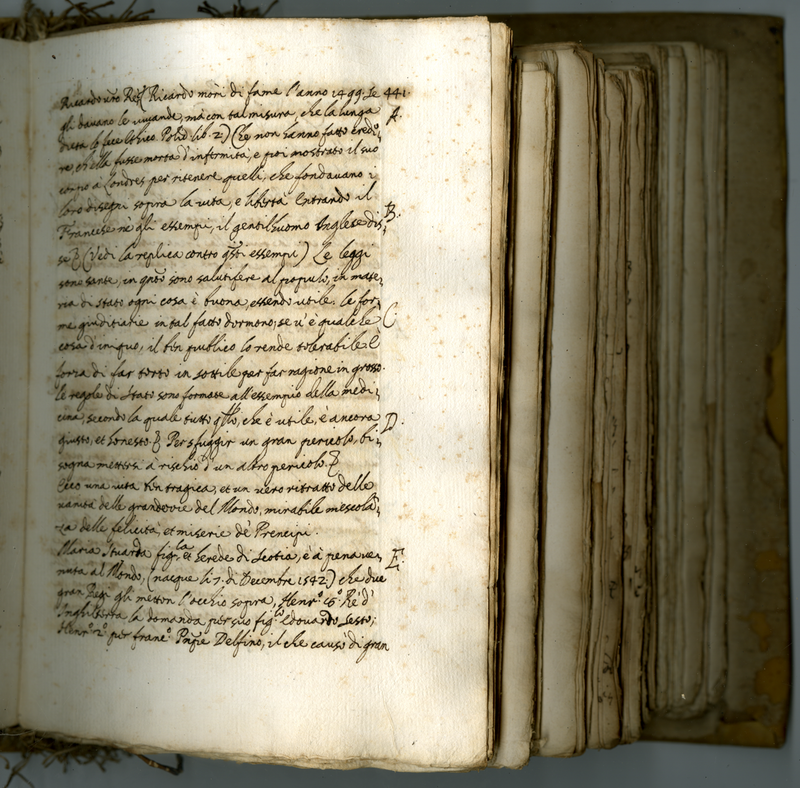 Ricardo morì di fame l'anno 1499. Le 441.
gli davano le vivande, mà con tal misura, che la lunga A.
dieta lo fece Polid. lib. 2.) Che non hanno fatto crede-
re, ch'ella fusse morta d'infermità, e poi mostrato il suo
corpo a Londres per ritenere quelli, che fondavano i
loro disegni sopra la vita, e libertà. Entrando il
Francese nè gli essempi, il gentilhuomo Inglese dis- B.
se (Vedi la replica contro q̃sti essempii) Le leggi
sono sante, in q̃nto sono salutifere al populo, in mate-
ria di stato ogni cosa è buona, essendo utile. le for-
me giuditiarie in tal fatto dormono; se v'è qualche C
cosa d'iniquo, il ben publico lo rende tolerabile. È
forza di far torto in sottile per far ragione in grosso.
le regole di stato sono formate all'essempio della medi-
cina, secondo la quale tutto q̃llo, che è utile, è ancora D.
giusto, et honesto. Per sfuggir un gran pericolo, bi-
sogna mettersi à rischio d'un altro pericolo.
Ecco una vita ben tragica, et un vero ritratto delle
vanità delle grandezze del Mondo, mirabile mescolã-
za delle felicità, et miserie de' Prencipi.
Maria Stuarda figla, et herede di Scotia, è à pena ve- E.
nuta al Mondo, (nacque li 7. di Decembre 1542.) che due
gran Regi gli metton l'occhio sopra, Henro Rè d'
Inghilterra la domanda per suo figlo Edouardo Sesto;
Henro 2o per franco Pñpe Delfino, il che causò di gran